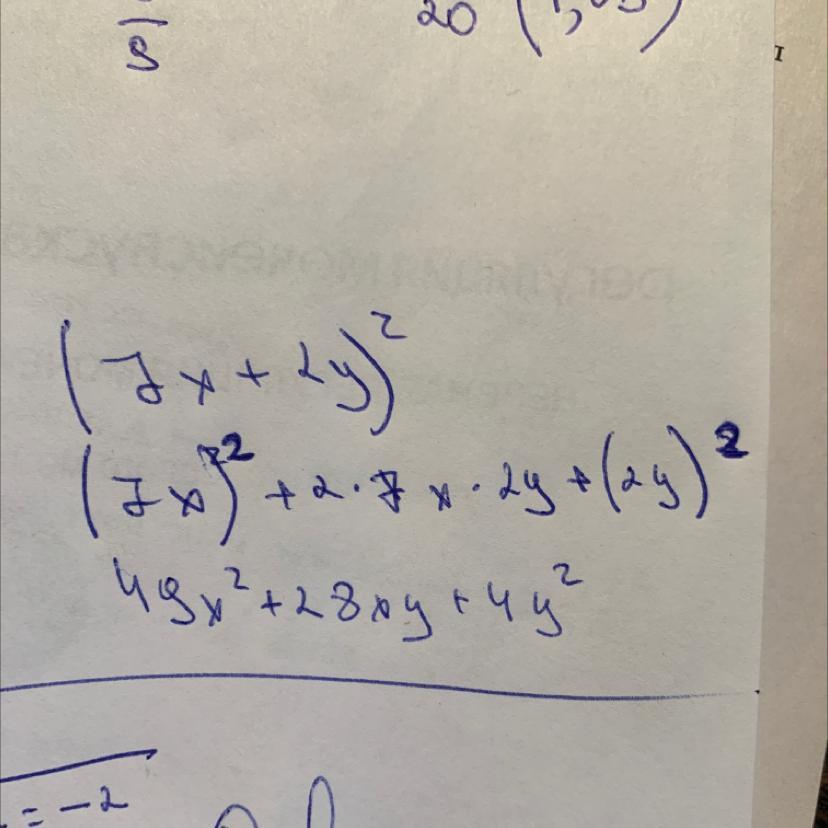 9
20
(7x+2y)²
(7x)²+2·7x·2y+(2y)²
49x²+28xy+4y²
= -2